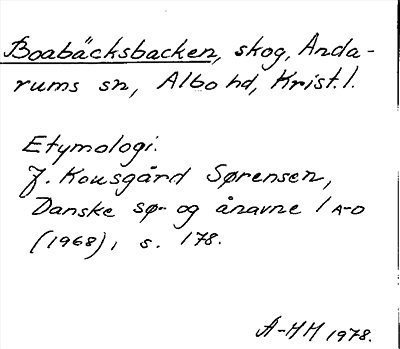 Boabäcksbacken, skog, Anda-
rums sn, Albo hd, Krist. l.
Etymologi:
J. Kousgård Sørensen,
Danske sø- og ånavne 1 A-O
(1968), s. 178.
A-HH 1978.